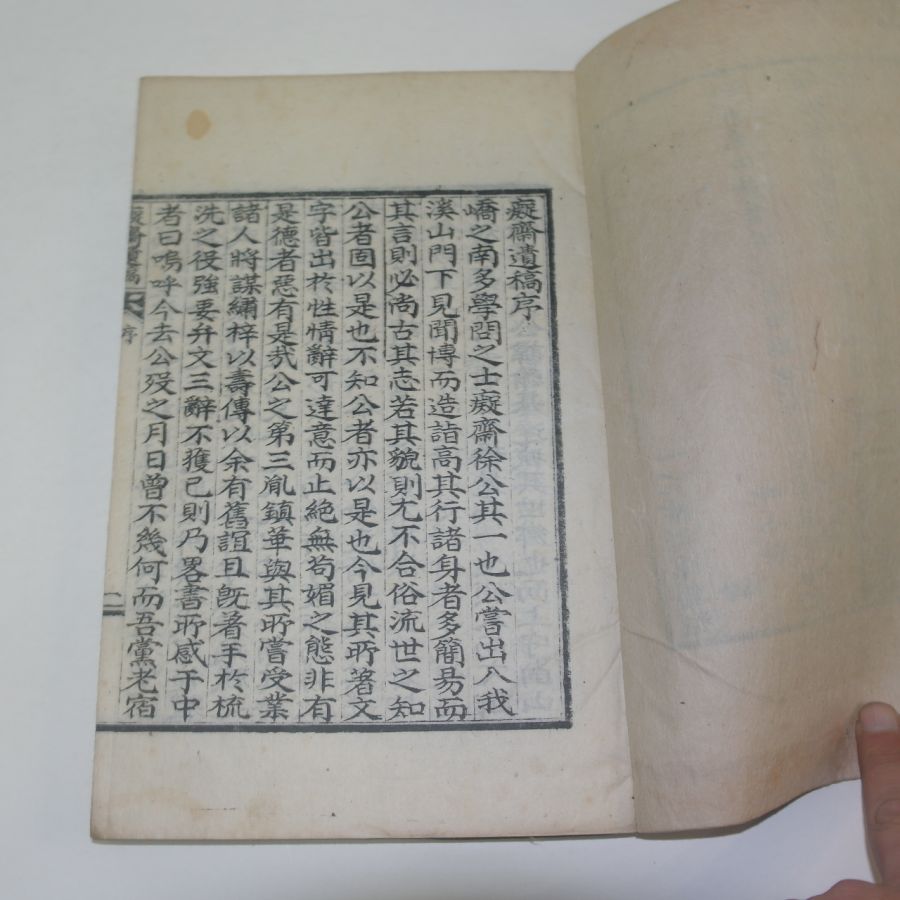 癡齋遺稿序
嶠之南多學問之士癡齋徐公其一也公嘗出入我
溪山門下見聞博而造詣高其行諸身者多簡易而
其言則必尚古其志若其貌則尤不合俗流世之知
公者固以是也不知公者亦以是也今見其所著文
字皆出於性情辭可達意而止絶無苟媚之態非有
是德者惡有是㢤公之第三胤鎮華與其所嘗受業
諸人將謀繡梓以壽傳以余有舊誼且旣著手於梳
洗之役強要弁文三辭不獲已則乃畧書所感于中
者曰嗚呼今去公歿之月日曾不幾何而吾黨老宿
癡齋遺稿 序 二